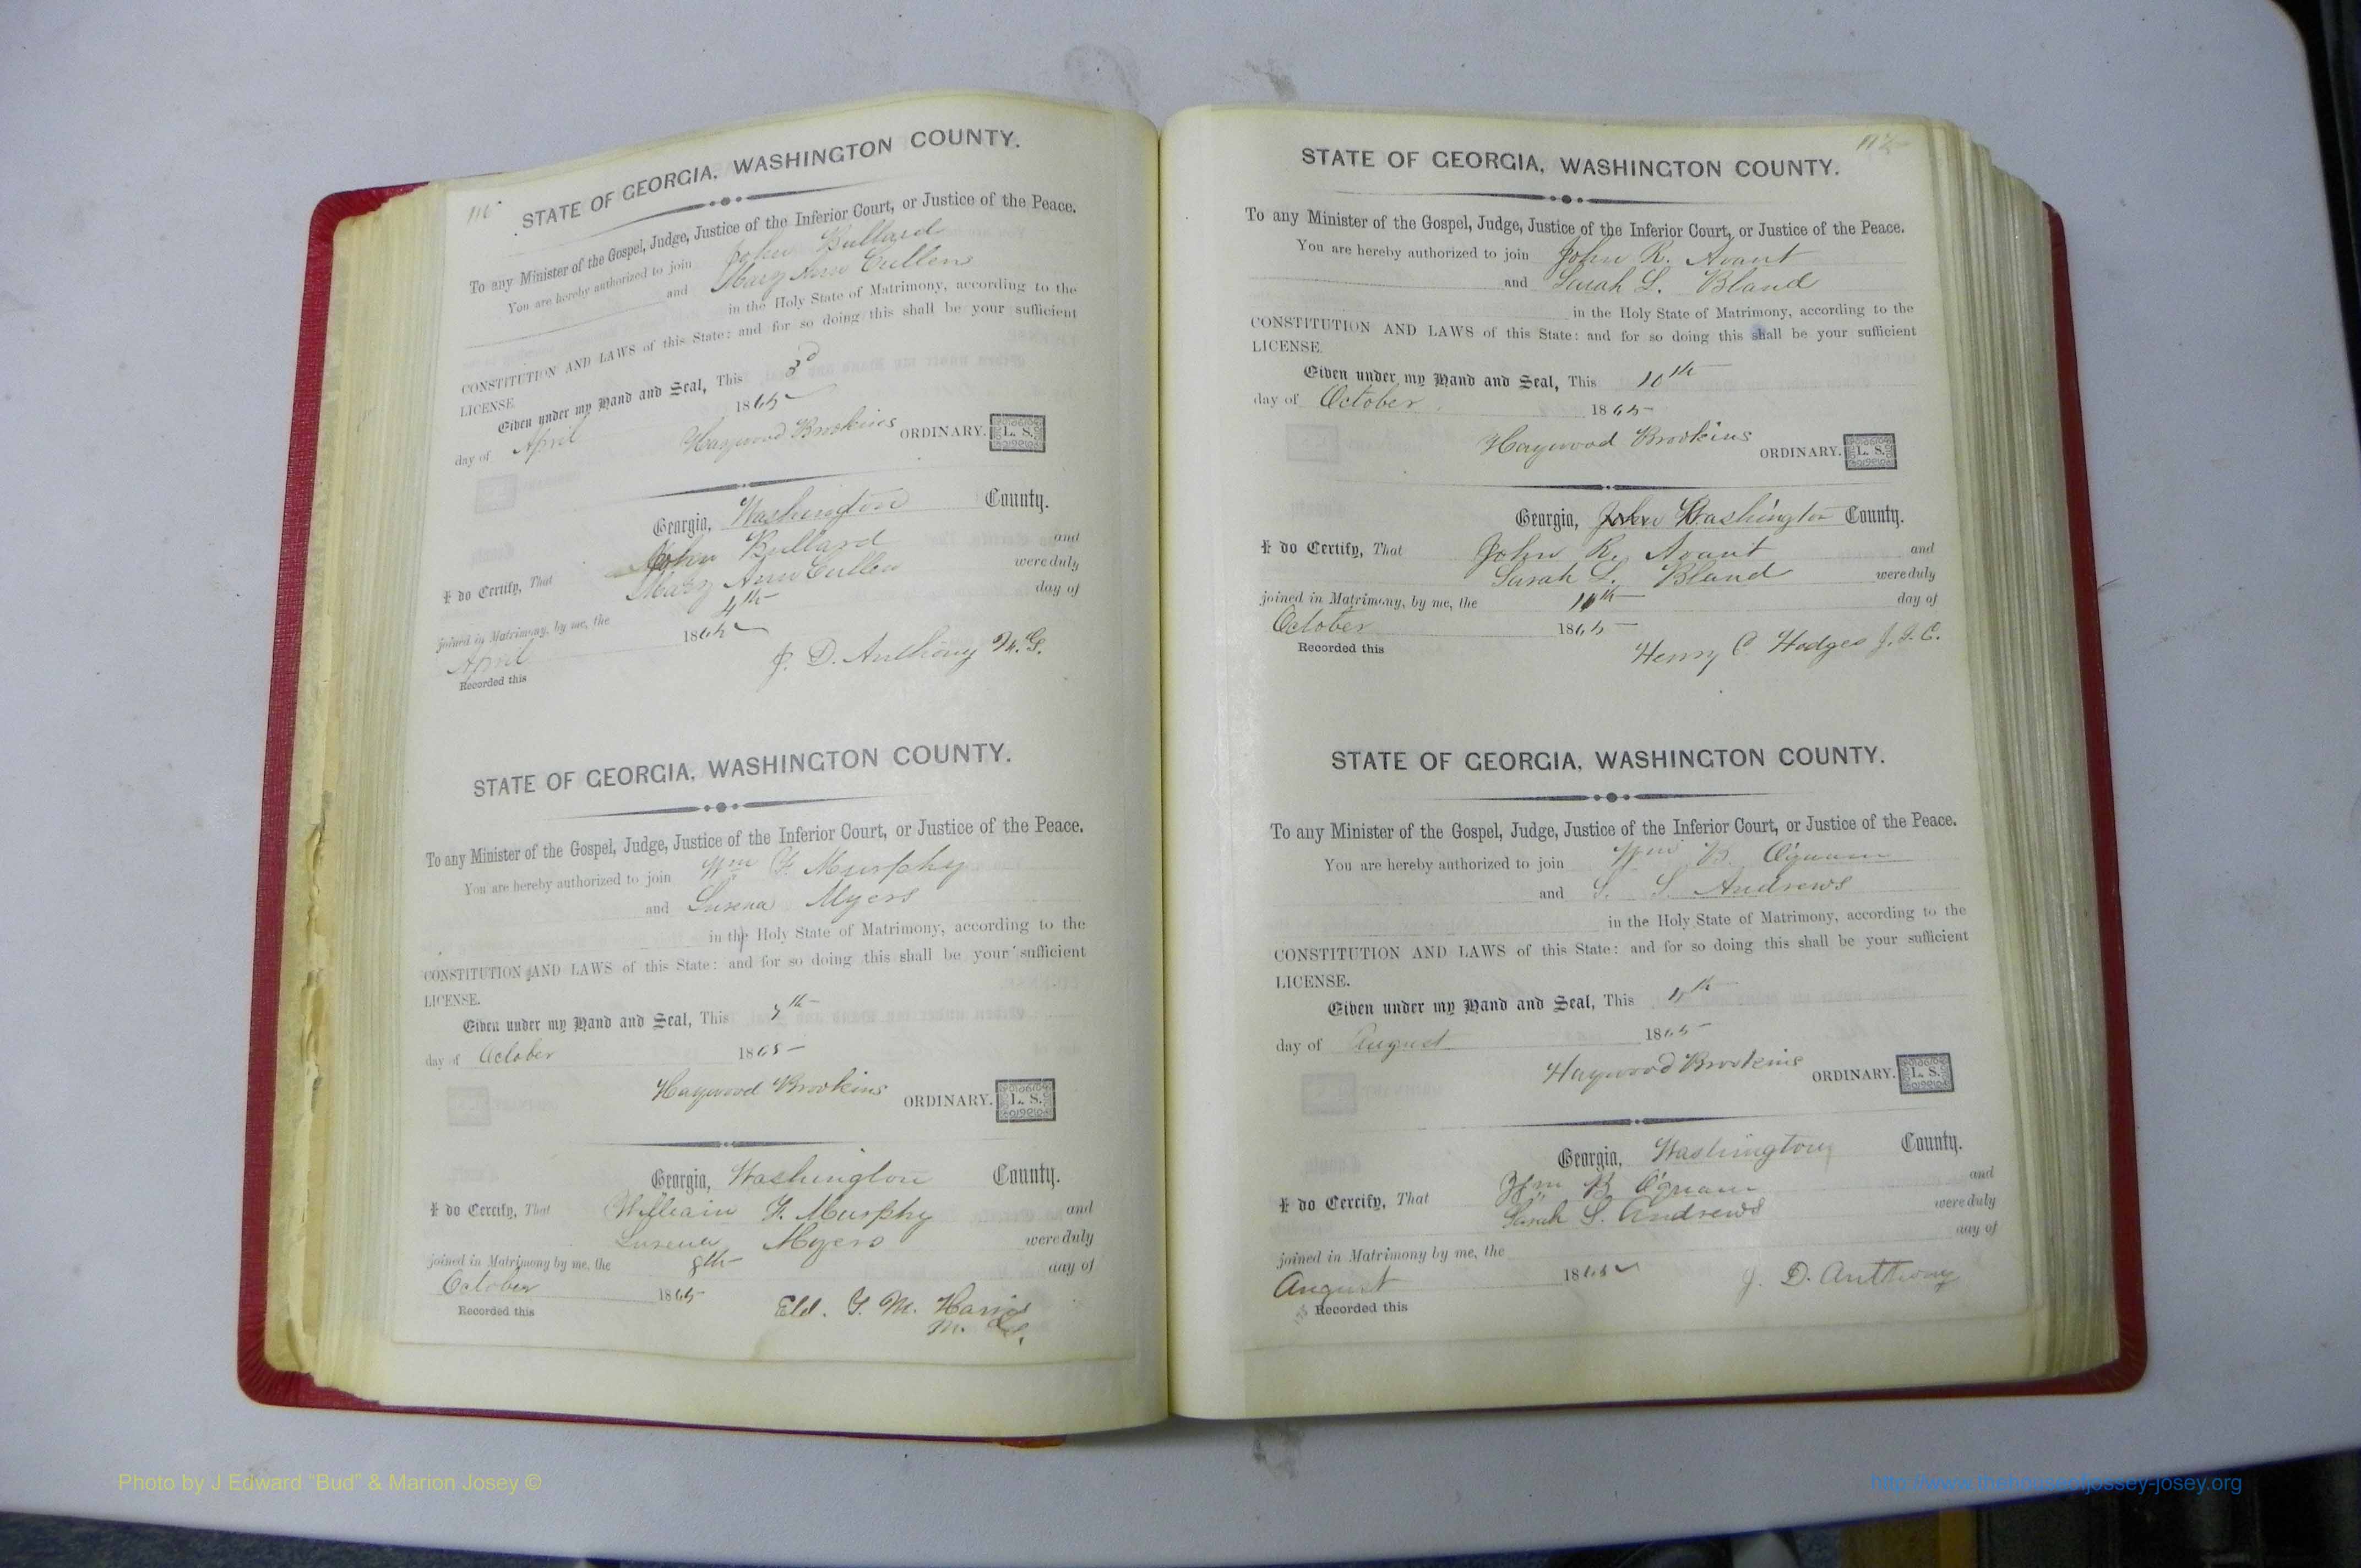 STATE OF GEORGIA, WASHINGTON COUNTY.
To any Minister of the Gospel, Judge, Justice of the Inferior Court, or Justice of the Peace.
You are hereby authorized to join John Bullard
and Mary Ann Cullens
in the Holy State of Matrimony, according to the
CONSTITUTION AND LAWS of this State: and for so doing this shall be your sufficient
LICENSE
Given under my Hand and Seal, This 3d
day of April 1865
Haywood Brookins ORDINARY. L. S.
Georgia, Washington County.
I do Certify, That John Bullard and
Mary Ann Cullen were duly
joined in Matrimony, by me, the 4th day of
April 1865
J. D. Anthony M. G.
Recorded this
STATE OF GEORGIA, WASHINGTON COUNTY.
To any Minister of the Gospel, Judge, Justice of the Inferior Court, or Justice of the Peace.
You are hereby authorized to join Wm F. Murphy
and Lurena Myers
in the Holy State of Matrimony, according to the
CONSTITUTION AND LAWS of this State: and for so doing this shall be your sufficient
LICENSE.
Given under my Hand and Seal, This 7th
day of October 1865
Haywood Brookins ORDINARY. L. S.
Georgia, Washington County.
I do Certify, That William F. Murphy and
Lurena Myers were duly
joined in Matrimony by me, the 8th day of
October 1865
Recorded this Eld. G. M. Harris
M. G.
112
STATE OF GEORGIA, WASHINGTON COUNTY.
To any Minister of the Gospel, Judge, Justice of the Inferior Court, or Justice of the Peace.
You are hereby authorized to join John R. Avant
and Sarah L. Bland
in the Holy State of Matrimony, according to the
CONSTITUTION AND LAWS of this State: and for so doing this shall be your sufficient
LICENSE.
Given under my Hand and Seal, This 10th
day of October 1865
Haywood Brookins ORDINARY. L. S.
Georgia, John Washington County.
I do Certify, That John R. Avant and
Sarah L. Bland were duly
joined in Matrimony, by me, the 10th day of
October 1865
Recorded this Henry C. Hodges J. I. C.
STATE OF GEORGIA, WASHINGTON COUNTY.
To any Minister of the Gospel, Judge, Justice of the Inferior Court, or Justice of the Peace.
You are hereby authorized to join Wm B. O'quam
and S. S. Andrews
in the Holy State of Matrimony, according to the
CONSTITUTION AND LAWS of this State: and for so doing this shall be your sufficient
LICENSE.
Given under my Hand and Seal, This
day of August 1865
Haywood Brookins ORDINARY. L. S.
Georgia, Washington County.
I do Certify, That Wm B. O'quam and
Sarah S. Andrews were duly
joined in Matrimony by me, the day of
August 1865 J. D. Anthony
Recorded this
Photo by J Edward "Bud" & Marion Josey ©
http://www.thehouseofjossey-josey.org